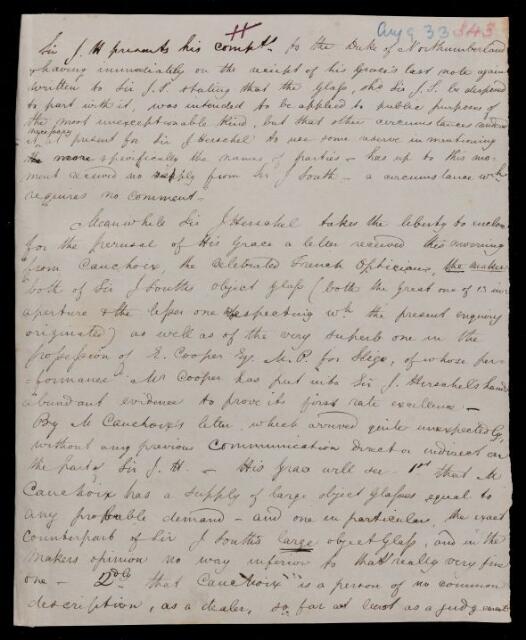 H
Aug 9 33 343
Sir J. H presents his compts. to the Duke of Northumberland
& having immediately on the receipt of his Grace's last note again
written to Sir J. S. stating that the Glass, shd Sir J. S. be disposed
to part with it, was intended to be applied to public purposes of
the most unexceptionable kind, but that other circumstances rendered
it necessary at present for Sir J Herschel to use some reserve in mentioning
the more specifically the names of parties - has up to this mo-
ment received no reply from Sir J South - a circumstance wh
requires no comment -
Meanwhile Sir J Herschel takes the liberty to enclose
for the perusal of His Grace a letter received this morning
from Cauchoix, the celebrated French Optician, the maker
both of Sir J Souths object Glass (both the Great one of 13 in
aperture & the lesser one respecting wh the present enquiry
originated) as well as of the very superb one in the
possession of E. Cooper Esq. M.P. for Sligo, of whose per-
formance Mr Cooper has put into Sir J. Herschels hands
abundant evidence to prove its first rate excellence -
By M Cauchoix's letter, which arrived quite unexpectedly,
without any previous communication direct or indirect on
the part of Sir J. H. - His Grace will see 1st that M
Cauchoix has a supply of large object Glasses equal to
any probable demand - and one in particular, the exact
counterpart of Sir J South's large object Glass, and in the
makers opinion no way inferior to that really very fine
one - 2dly that Cauchoix is a person of no common
description, as a dealer, so far at least as a judgment